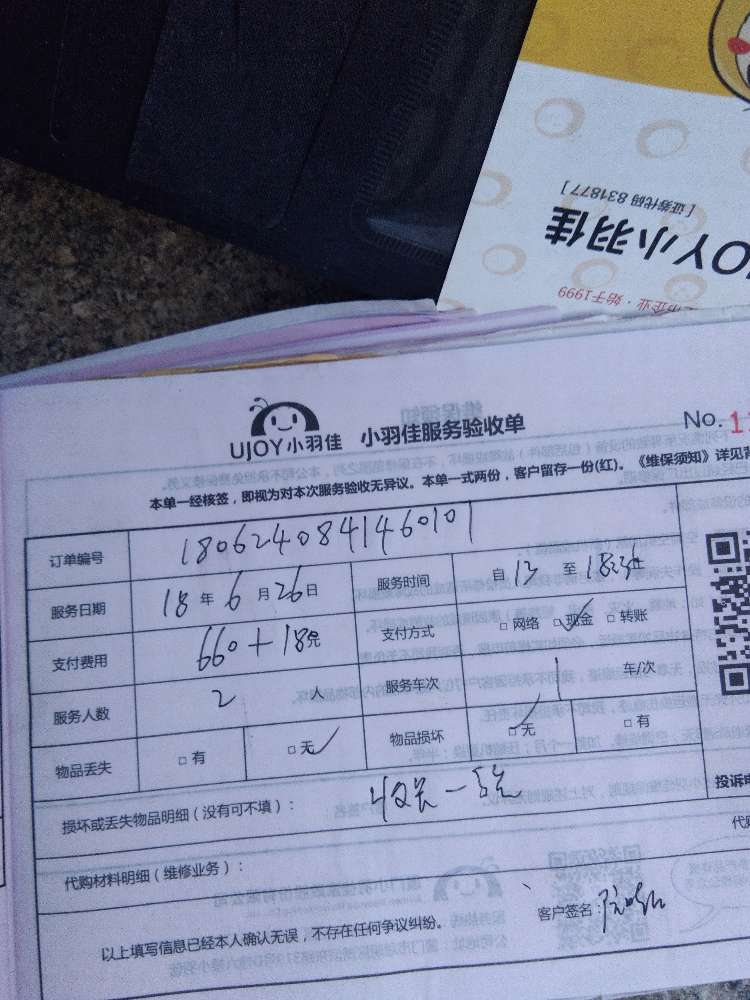 [ 证券代码 831877 ]
JOY小羽佳
企业·始于1999
UJOY小羽佳 小羽佳服务验收单 No. 1
本单一经核签，即视为对本次服务验收无异议。本单一式两份，客户留存一份(红)。《维保须知》详见背
订单编号 1806240841460101
服务日期 18 年 6 月 26 日 服务时间 自 13 至 18
支付费用 660+18元 支付方式 □ 网络 □ 现金 □ 转账
服务人数 2 人 服务车次 1 车/次
物品丢失 □ 有 □ 无 物品损坏 □ 无 □ 有
损坏或丢失物品明细（没有可不填）：
投诉电
代购材料明细（维修业务）：
代购
以上填写信息已经本人确认无误，不存在任何争议纠纷。 客户签名：